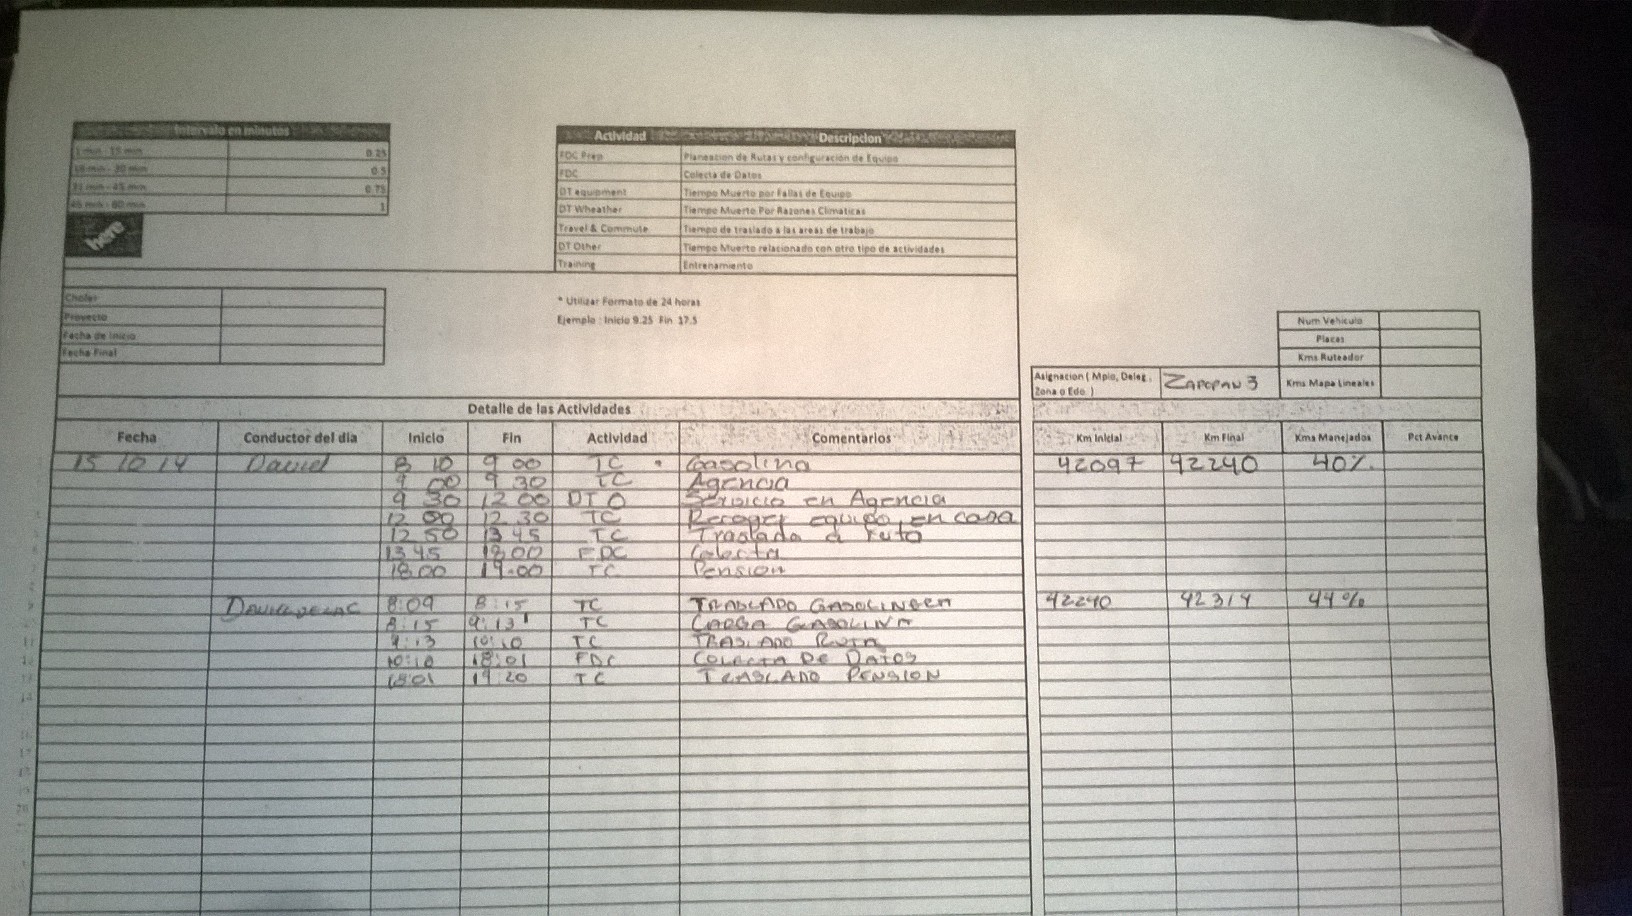 Intervalo en minutos
1 min - 15 min 0.25
15 min - 30 min 0.5
31 min - 45 min 0.75
45 min - 60 min 1
here
Actividad Descripcion
FDC Prep Planeation de Rutas y configuración de Equipo
FDC Colecta de Datos
DT equipment Tiempo Muerto por Fallas de Equipo
DT Wheather Tiempo Muerto Por Razones Climaticas
Travel & Commute Tiempo de traslado a las areas de trabajo
DT Other Tiempo Muerto relacionado con otro tipo de actividades
Training Entrenamiento
Chofer
Proyecto
Fecha de Inicio
Fecha Final
* Utilizar Formato de 24 horas
Ejemplo : Inicio 9.25 Fin 17.5
Num Vehiculo
Placas
Kms Ruteador
Asignacion ( Mpio, Deleg , Zona o Edo ) ZAPOPAN 3 Kms Mapa Lineales
Detalle de las Actividades
Fecha Conductor del dia Inicio Fin Actividad Comentarios Km Inicial Km Final Kms Manejados Pct Avance
15 10 14 David 8 10 9 00 TC Gasolina 42097 42240 40%.
9 00 9 30 TC Agencia
9 30 12 00 DT O Servicio en Agencia
12 00 12 30 TC Recoger equipo en casa
12 50 13 45 TC Traslado a ruta
13 45 18 00 FDC Colecta
18.00 19.00 TC Pension
8:09 8:15 TC TRASLADO 42240 42314 44%
8:15 9:13 TC CARGA GASOLINA
9:13 10:10 TC TRASLADO RUTA
10:10 18:01 FDC COLECTA DE DATOS
18:01 19:20 TC TRASLADO PENSION